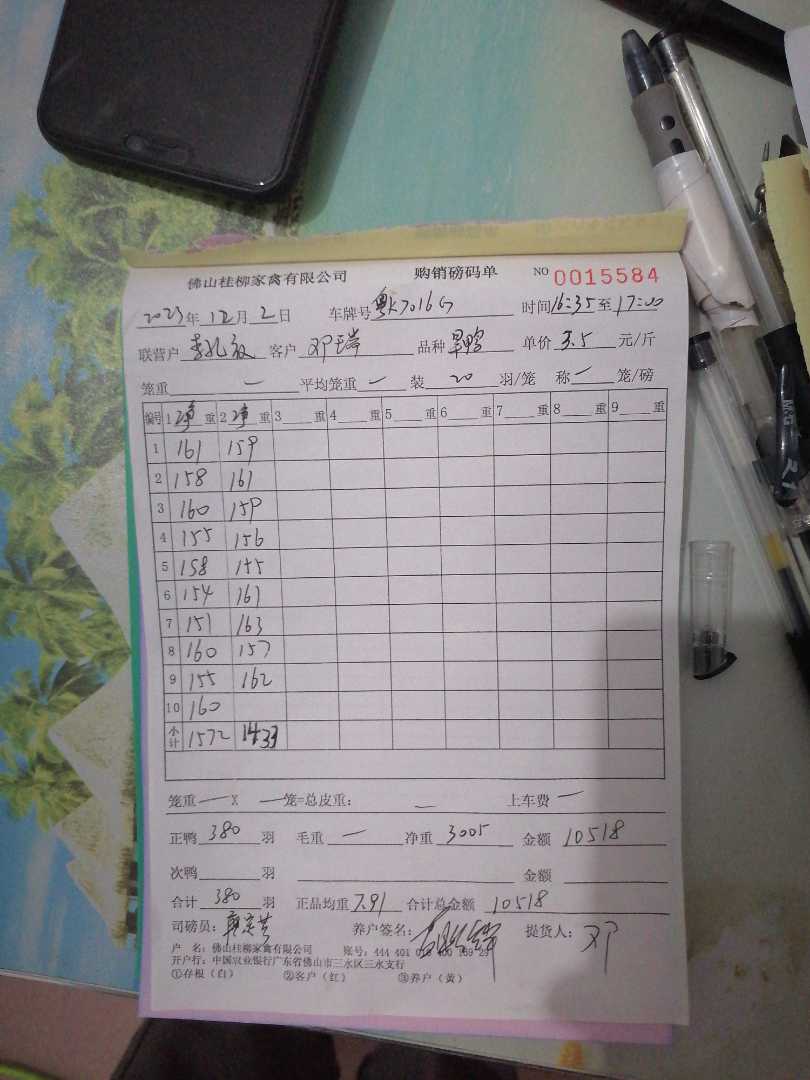 佛山桂柳家禽有限公司 购销磅码单 NO 0015584
2023年12月2日 车牌号 粤K7016G 时间16:35至17:00
联营户 客户 邓 品种 旱鸭 单价 3.5 元/斤
笼重 一 平均笼重 一 装 20 羽/笼 称 一 笼/磅
编号 1 净 重 2 净 重 3 重 4 重 5 重 6 重 7 重 8 重 9 重
1 161 159
2 158 161
3 160 159
4 155 156
5 158 155
6 154 161
7 151 163
8 160 157
9 155 162
10 160
小计 1572 1433
笼重 一 X 一 笼=总皮重: 一 上车费 一
正鸭 380 羽 毛重 一 净重 3005 金额 10518
次鸭 羽 金额
合计 380 羽 正品均重 7.91 合计总金额 10518
司磅员: 养户签名: 提货人: 邓
户 名: 佛山桂柳家禽有限公司 账号: 444 401
开户行: 中国农业银行广东省佛山市三水区三水支行
①存根(白) ②客户(红) ③养户(黄)
M&G